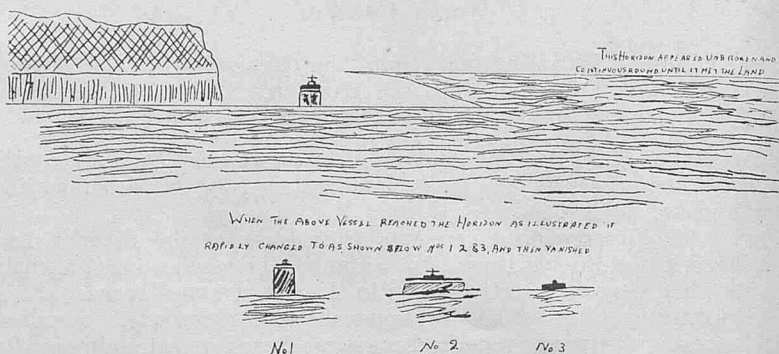 THIS HORIZON APPEARED UNBROKEN AND
CONTINUOUS ROUND UNTIL IT MET THE LAND
WHEN THE ABOVE VESSEL REACHED THE HORIZON AS ILLUSTRATED IT
RAPIDLY CHANGED TO AS SHOWN BELOW NOS 1 2 & 3, AND THEN VANISHED
No 1 No 2 No 3